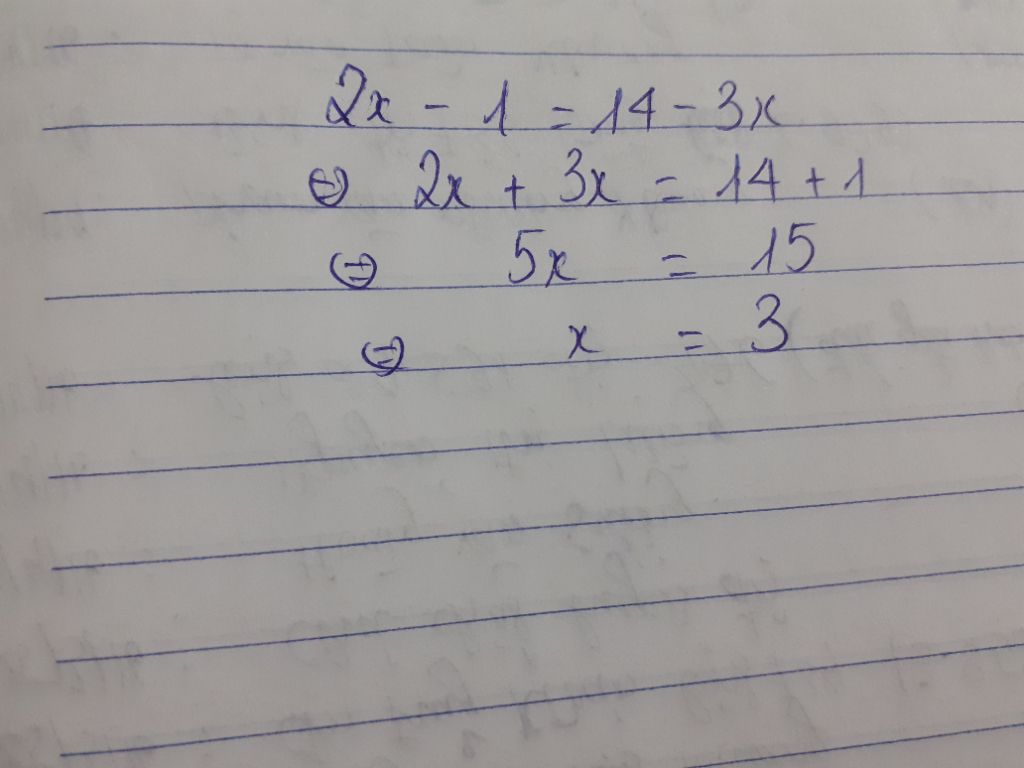 2x - 1 = 14 - 3x
⇔ 2x + 3x = 14 + 1
⇔ 5x = 15
⇔ x = 3